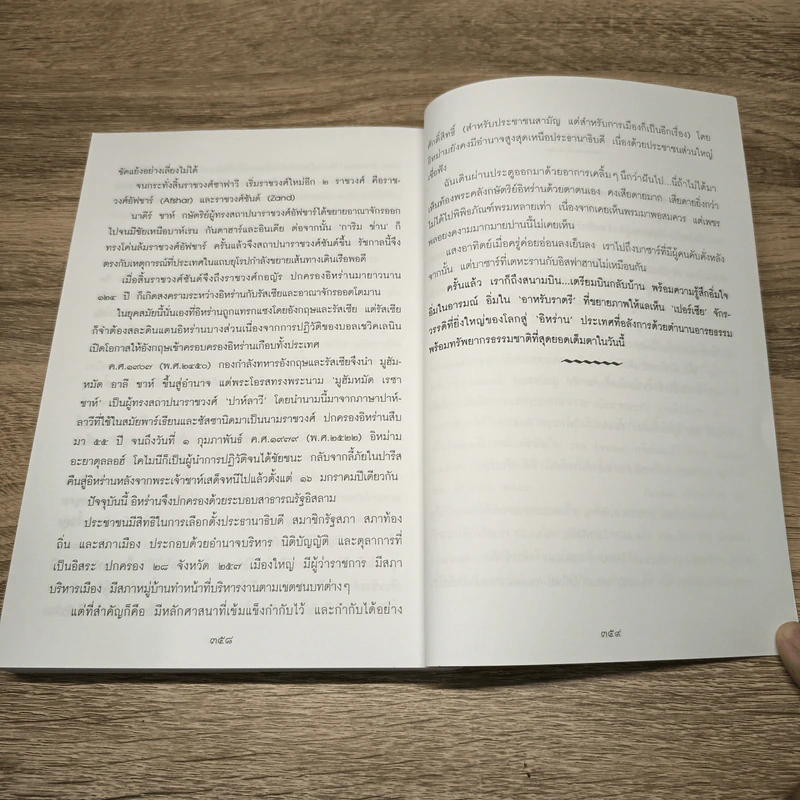 ขัดแย้งอย่างเลี่ยงไม่ได้
จนกระทั่งสิ้นราชวงศ์ซาฟาวี เริ่มราชวงศ์ใหม่อีก ๒ ราชวงศ์ คือราช-
วงศ์อัฟชาร์ (Afshar) และราชวงศ์ซันด์ (Zand)
นาดีร์ ชาห์ กษัตริย์ผู้ทรงสถาปนาราชวงศ์อัฟชาร์ได้ขยายอาณาจักรออก
ไปจนมีชัยเหนือบาห์เรน กันดาฮาร์และอินเดีย ต่อจากนั้น 'การิม ข่าน' ก็
ทรงโค่นล้มราชวงศ์อัฟชาร์ ครั้นแล้วจึงสถาปนาราชวงศ์ซันด์ขึ้น รัชกาลนี้จึง
ตรงกับเหตุการณ์ที่ประเทศในแถบยุโรปกำลังขยายเส้นทางเดินเรือพอดี
เมื่อสิ้นราชวงศ์ซันด์จึงถึงราชวงศ์กอญัร ปกครองอิหร่านมายาวนาน
๑๒๙ ปี ก็เกิดสงครามระหว่างอิหร่านกับรัสเซียและอาณาจักรออตโตมาน
ในยุคสมัยนี้นั่นเองที่อิหร่านถูกแทรกแซงโดยอังกฤษและรัสเซีย แต่รัสเซีย
ก็จำต้องสละดินแดนอิหร่านบางส่วนเนื่องจากการปฏิวัติของบอลเชวิคเลนิน
เปิดโอกาสให้อังกฤษเข้าครอบครองอิหร่านเกือบทั้งประเทศ
ค.ศ.๑๙๐๗ (พ.ศ.๒๔๕๐) กองกำลังทหารอังกฤษและรัสเซียจึงนำ มูฮัม-
หมัด อาลี ชาห์ ขึ้นสู่อำนาจ แต่พระโอรสทรงพระนาม 'มูฮัมหมัด เรซา
ชาห์' เป็นผู้ทรงสถาปนาราชวงศ์ 'ปาห์ลาวี' โดยนำนามนี้มาจากภาษาปาห์-
ลาวีที่ใช้ในสมัยพาร์เธียนและซัสซานิดมาเป็นนามราชวงศ์ ปกครองอิหร่านสืบ
มา ๕๕ ปี จนถึงวันที่ ๑ กุมภาพันธ์ ค.ศ.๑๙๗๙ (พ.ศ.๒๕๒๒) อิหม่าม
อะยาตุลลอฮ์ โคไมนีก็เป็นผู้นำการปฏิวัติจนได้ชัยชนะ กลับจากลี้ภัยในปารีส
คืนสู่อิหร่านหลังจากพระเจ้าชาห์เสด็จหนีไปแล้วตั้งแต่ ๑๖ มกราคมปีเดียวกัน
ปัจจุบันนี้ อิหร่านจึงปกครองด้วยระบอบสาธารณรัฐอิสลาม
ประชาชนมีสิทธิในการเลือกตั้งประธานาธิบดี สมาชิกรัฐสภา สภาท้อง
ถิ่น และสภาเมือง ประกอบด้วยอำนาจบริหาร นิติบัญญัติ และตุลาการที่
เป็นอิสระ ปกครอง ๒๘ จังหวัด ๒๕๗ เมืองใหญ่ มีผู้ว่าราชการ มีสภา
บริหารเมือง มีสภาหมู่บ้านทำหน้าที่บริหารงานตามเขตชนบทต่างๆ
แต่ที่สำคัญก็คือ มีหลักศาสนาที่เข้มแข็งกำกับไว้ และกำกับได้อย่าง
๓๕๘
ศักดิ์สิทธิ์ (สำหรับประชาชนสามัญ แต่สำหรับการเมืองก็เป็นอีกเรื่อง) โดย
อิหม่ามยังคงมีอำนาจสูงสุดเหนือประธานาธิบดี เนื่องด้วยประชาชนส่วนใหญ่
เชื่อฟัง
ฉันเดินผ่านประตูออกมาด้วยอาการเคลิ้มๆ นึกว่าฝันไป...นี่ถ้าไม่ได้มา
เห็นท้องพระคลังกษัตริย์อิหร่านด้วยตาตนเอง คงเสียดายมาก เสียดายยิ่งกว่า
ไม่ได้ไปพิพิธภัณฑ์พรมหลายเท่า เนื่องจากเคยเห็นพรมมาพอสมควร แต่เพชร
พลอยงดงามมากมายปานนี้ไม่เคยเห็น
แสงอาทิตย์เมื่อครู่ค่อยอ่อนลงเย็นลง เราไปถึงบาซาร์ที่มีผู้คนคับคั่งหลัง
จากนั้น แต่บาซาร์ที่เตหะรานกับอิสฟาฮานไม่เหมือนกัน
ครั้นแล้ว เราก็ถึงสนามบิน...เตรียมบินกลับบ้าน พร้อมความรู้สึกอิ่มใจ
อิ่มในอารมณ์ อิ่มใน 'อาหรับราตรี' ที่ขยายภาพให้แลเห็น 'เปอร์เซีย' จักร-
วรรดิที่ยิ่งใหญ่ของโลกสู่ 'อิหร่าน' ประเทศที่อลังการด้วยตำนานอารยธรรม
พร้อมทรัพยากรธรรมชาติที่สุดยอดเต็มตาในวันนี้
๓๕๙